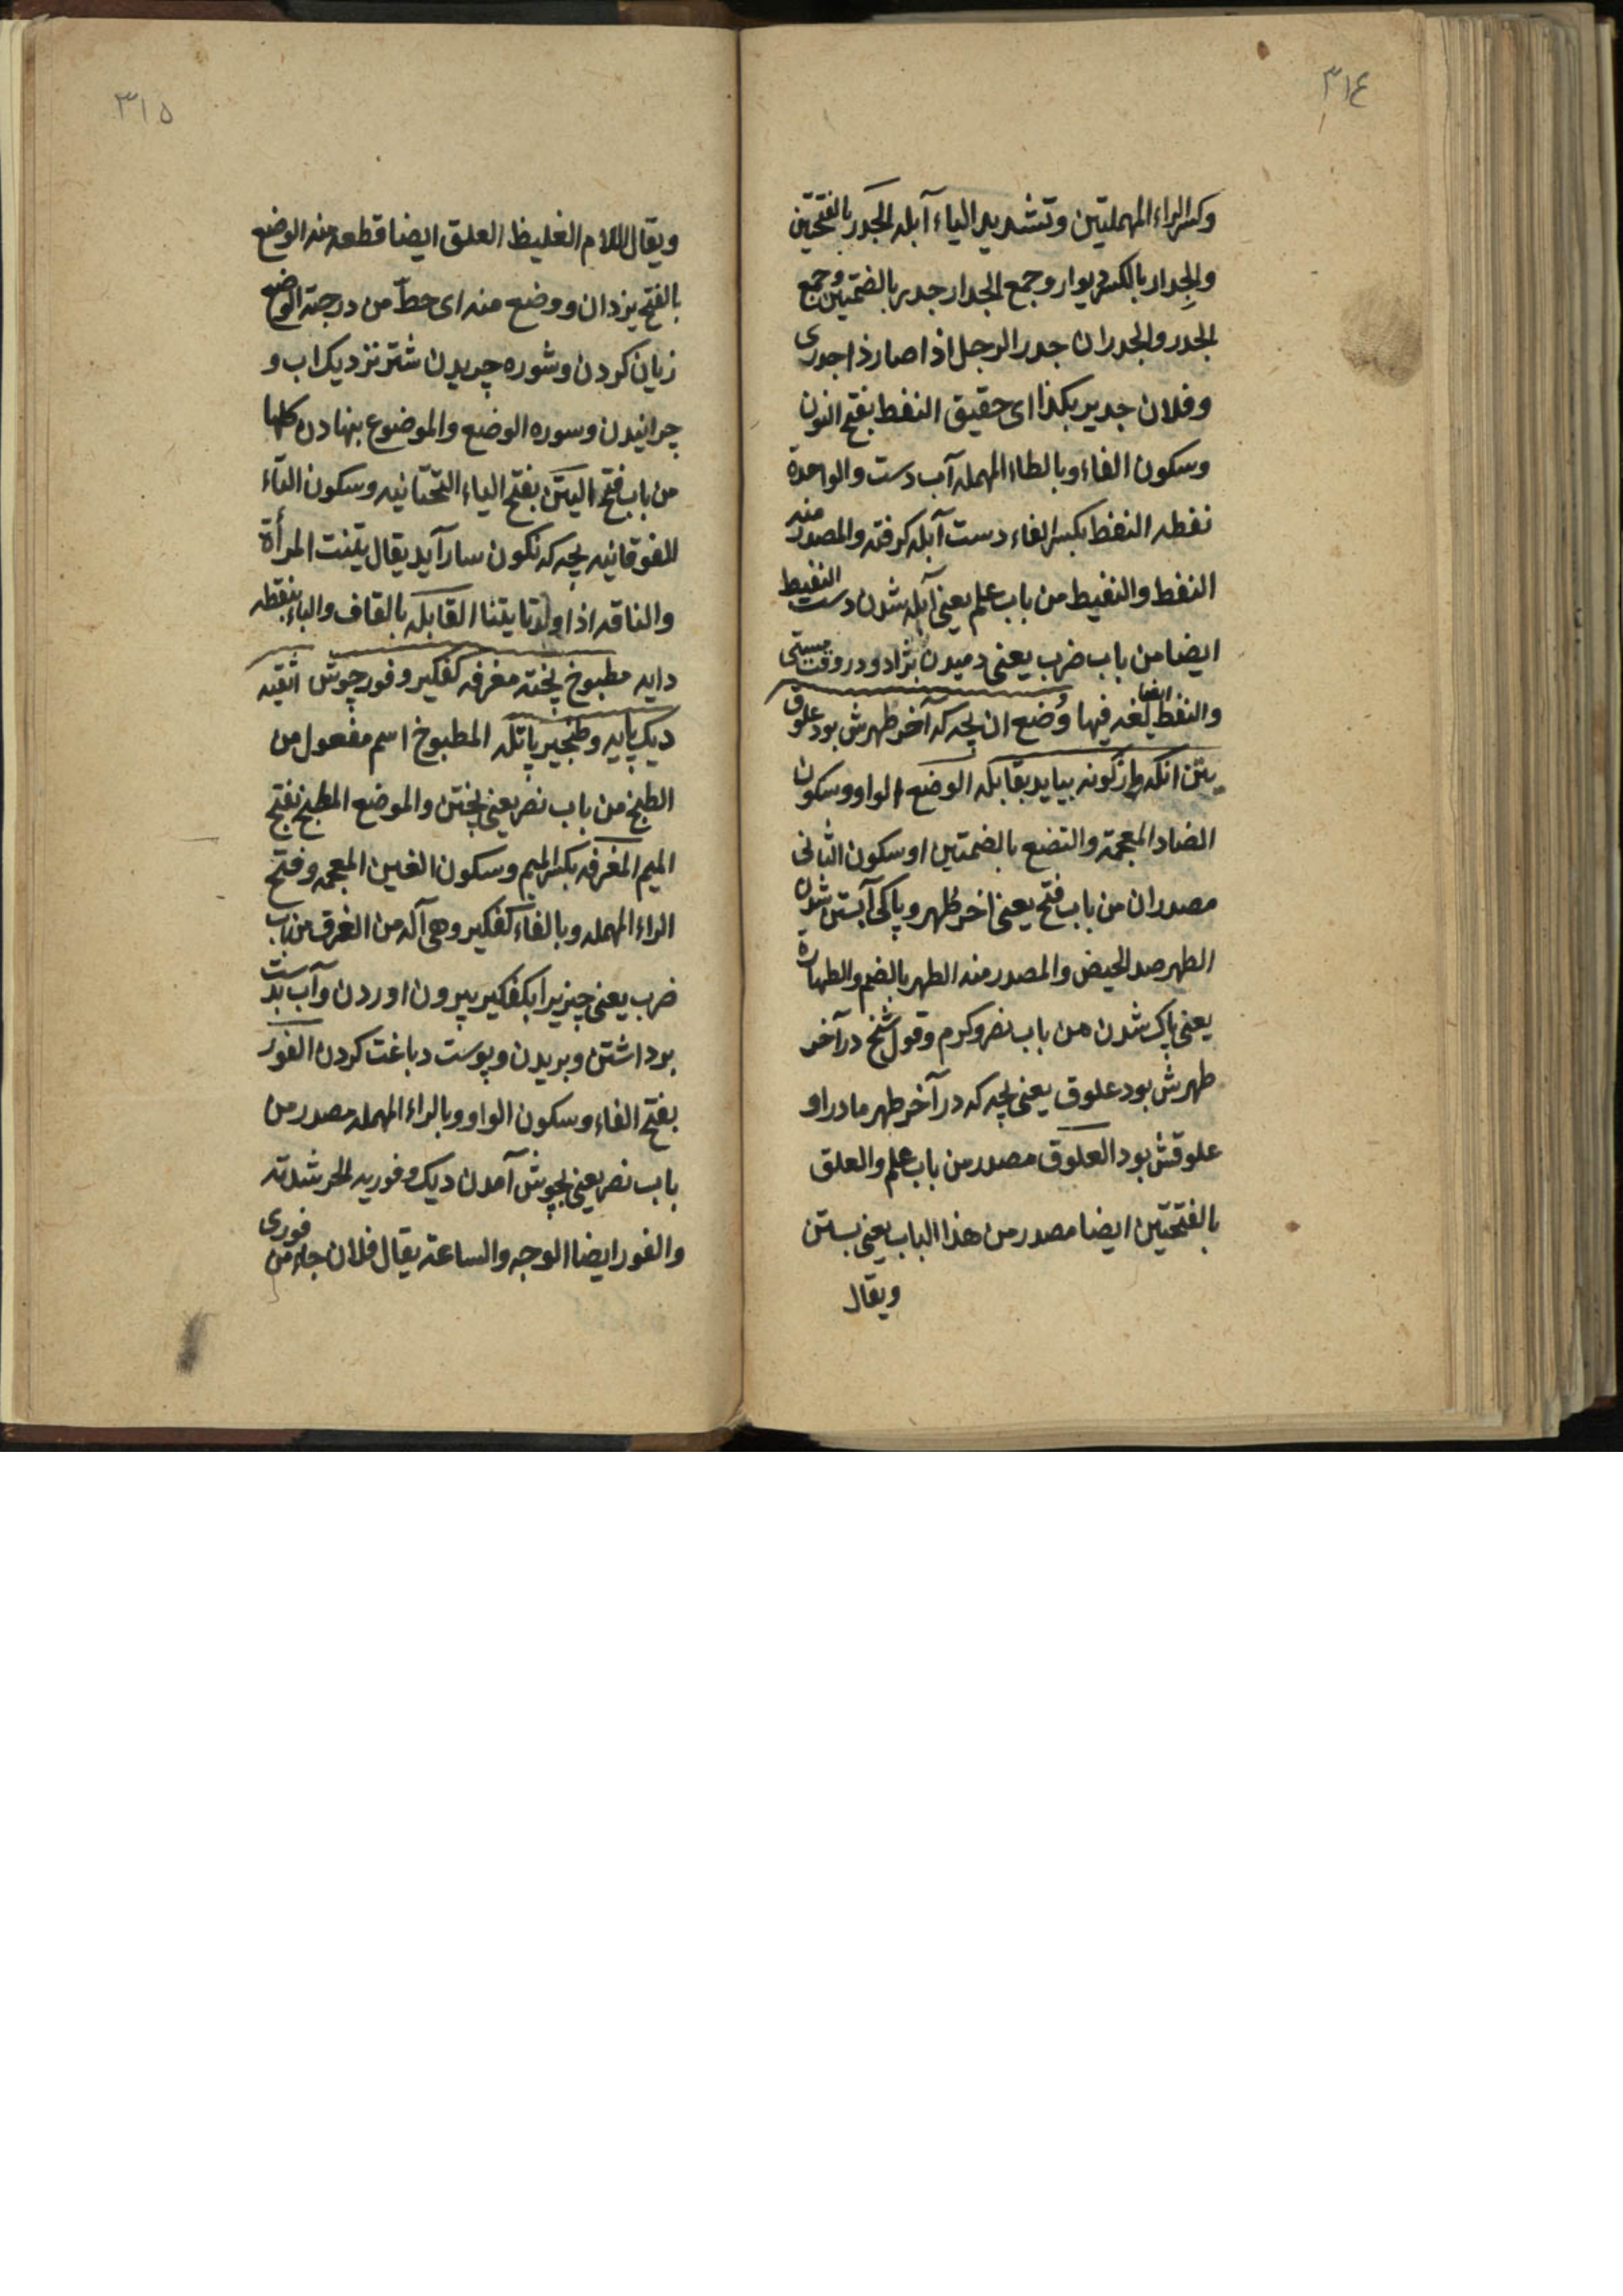 ٣١٤
وكسر الراء المهملتين وتشديد الياء آبله الجدر بالفتحتين
والجدار بالكسر ديوار وجمع الجدار جدر بالضمتين وجمع
الجدر والجدران جدر الرجل اذا صار ذا جدرى
وفلان جدير بكذا اى حقيق النفط بفتح النون
وسكون الفاء وبالطاء المهمله آب دست والواحدة
نفطه النفط بكسر الفاء دست آبله كرفته والمصدر منه
النفط والنفيط من باب علم يعنى آبله شدن دست النفيط
ايضا من باب ضرب يعنى دميدن
والنفط ايضا لغه فيها وضع ان بچه كه آخر طهرش بود علوق
يتن انكه واژگونه بيايد بقابله الوضع الواو وسكون
الضاد المعجمة والتضع بالضمتين او سكون الثانى
مصدران من باب فتح يعنى اخر طهر و پاكى آبستن شدن
الطهر ضد الحيض والمصدر منه الطهر بالضم والطهارة
يعنى پاك شدن من باب نصر وكرم وقول شيخ در آخر
طهرش بود علوق يعنى بچه كه در آخر طهر مادر او
علوقش بود العلوق مصدر من باب علم والعلق
بالفتحتين ايضا مصدر من هذا الباب يعنى بستن
ويقال
٣١٥
ويقال اللام الغليظ العلق ايضا قطعه منه الوضع
بالفتح يزدان ووضع منه اى حط من درجته الوضع
زيان كردن وشوره چريدن شتر نزديك اب و
چرانيدن وسوره الوضع والموضوع بنهادن كلها
من باب فتح اليتن بفتح الياء التحتانيه وسكون التاء
الفوقانيه بچه كه نكون سار آيد يقال يتنت المرأة
والناقه اذا ولدتا يتنا القابله بالقاف والباء بنقطه
دايه مطبوخ پخته مغرفه كفكير و فور جوش اثفيه
ديك پايه و طنجير پاتله المطبوخ اسم مفعول من
الطبخ من باب نصر يعنى پختن والموضع المطبخ بفتح
الميم المغرفه بكسر الميم وسكون الغين المعجمه وفتح
الراء المهمله وبالفاء كفكير وهى آله من الغرف من باب
ضرب يعنى چيزيرا بكفكير بيرون اوردن وآب بدست
برداشتن وبريدن وپوست دباغت كردن الفور
بفتح الفاء وسكون الواو وبالراء المهمله مصدر من
باب نصر يعنى بجوش آمدن ديك وفوريه الحر شدته
والفور ايضا الوجه والساعة يقال فلان جاء من فورى